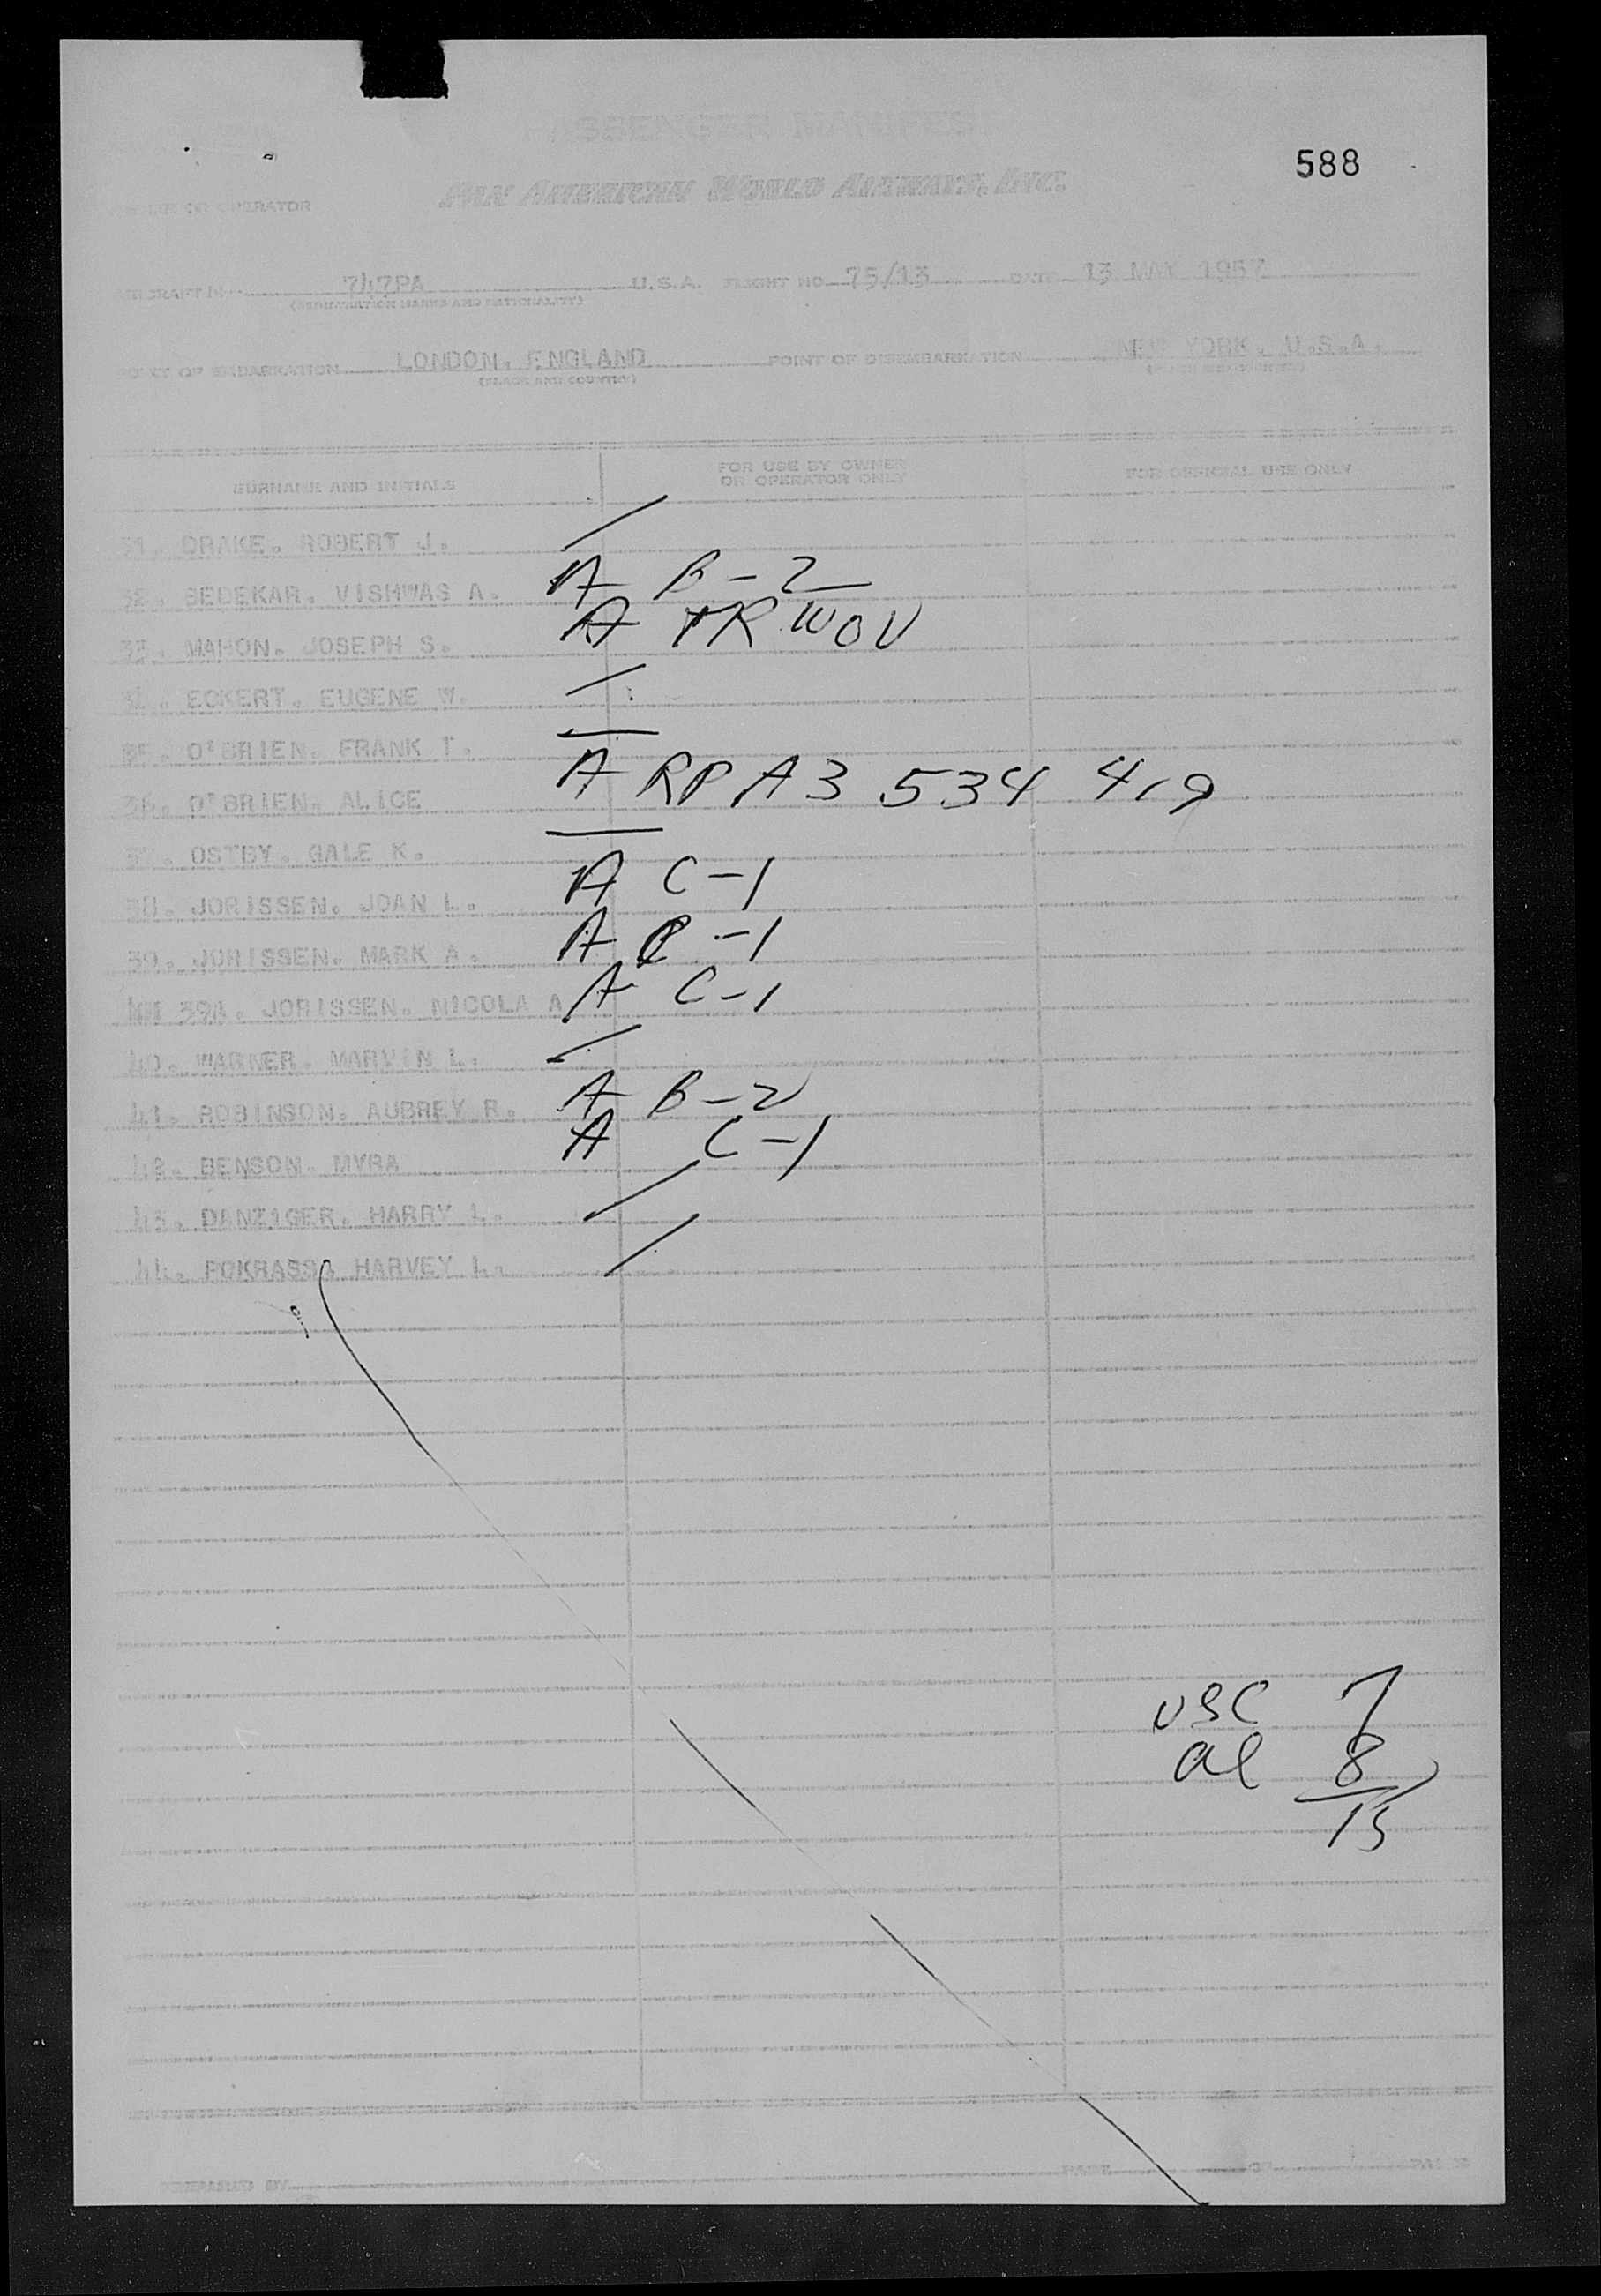 PASSENGER MANIFEST
588
PAN AMERICAN WORLD AIRWAYS, INC.
OWNER OR OPERATOR
AIRCRAFT N 747PA U.S.A. FLIGHT NO 75/13 DATE 13 MAY 1957
(REGISTRATION MARKS AND NATIONALITY)
POINT OF EMBARKATION LONDON. ENGLAND POINT OF DISEMBARKATION NEW YORK. U.S.A.
(PLACE AND COUNTRY) (PLACE AND COUNTRY)
SURNAME AND INITIALS FOR USE BY OWNER OR OPERATOR ONLY FOR OFFICIAL USE ONLY
31. DRAKE. ROBERT J. /
32. BEDEKAR. VISHWAS A. A B-2
33. MAHON. JOSEPH S. A TR WOV
34. ECKERT. EUGENE W. /
35. O'BRIEN. FRANK T. —
36. O'BRIEN. ALICE A RP A3 534 419
37. OSTBY. GALE K. —
38. JORISSEN. JOAN L. A C-1
39. JORISSEN. MARK A. A C-1
39A. JORISSEN. NICOLA A A C-1
40. WARNER. MARVIN L. /
41. ROBINSON. AUBREY R. A B-2
42. BENSON. MYRA A C-1
43. DANZIGER. HARRY L. /
44. POKRASS. HARVEY L. /
USC 7
al 8
15
PREPARED BY PAGE OF